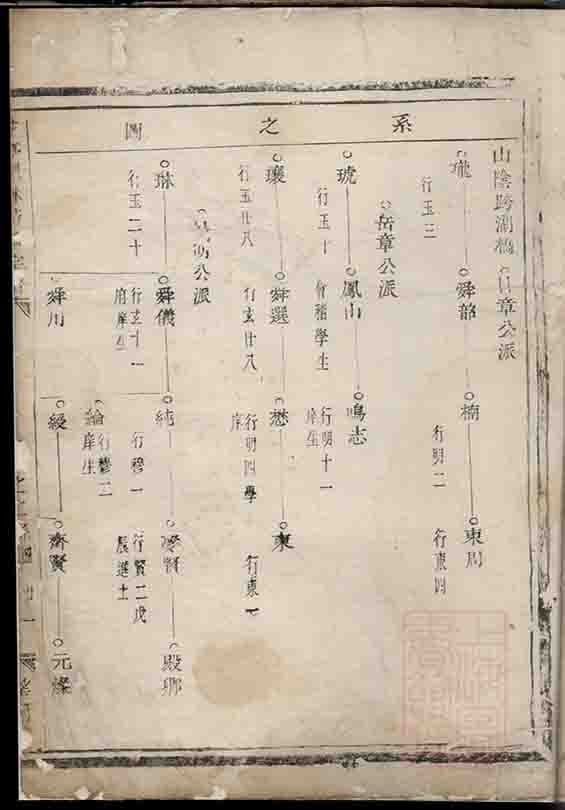 系之圖
山陰跨湖橋 日章公派
舜韶
楠
東周
行玉三
行明二
行東四
岳章公派
琥
鳳山
鳴志
行玉十
會稽學生
行明十一
庠生
瓌
舜選
懋
東
行玉廿八
行玄廿八
行明四學
庠
行東七
公派
琳
舜儀
純
賢
殿卿
行玉二十
行玄十一
府庠生
行穆一
行賢二戊
辰進士
綸
行穆二
庠生
舜川
綬
齊賢
元燦